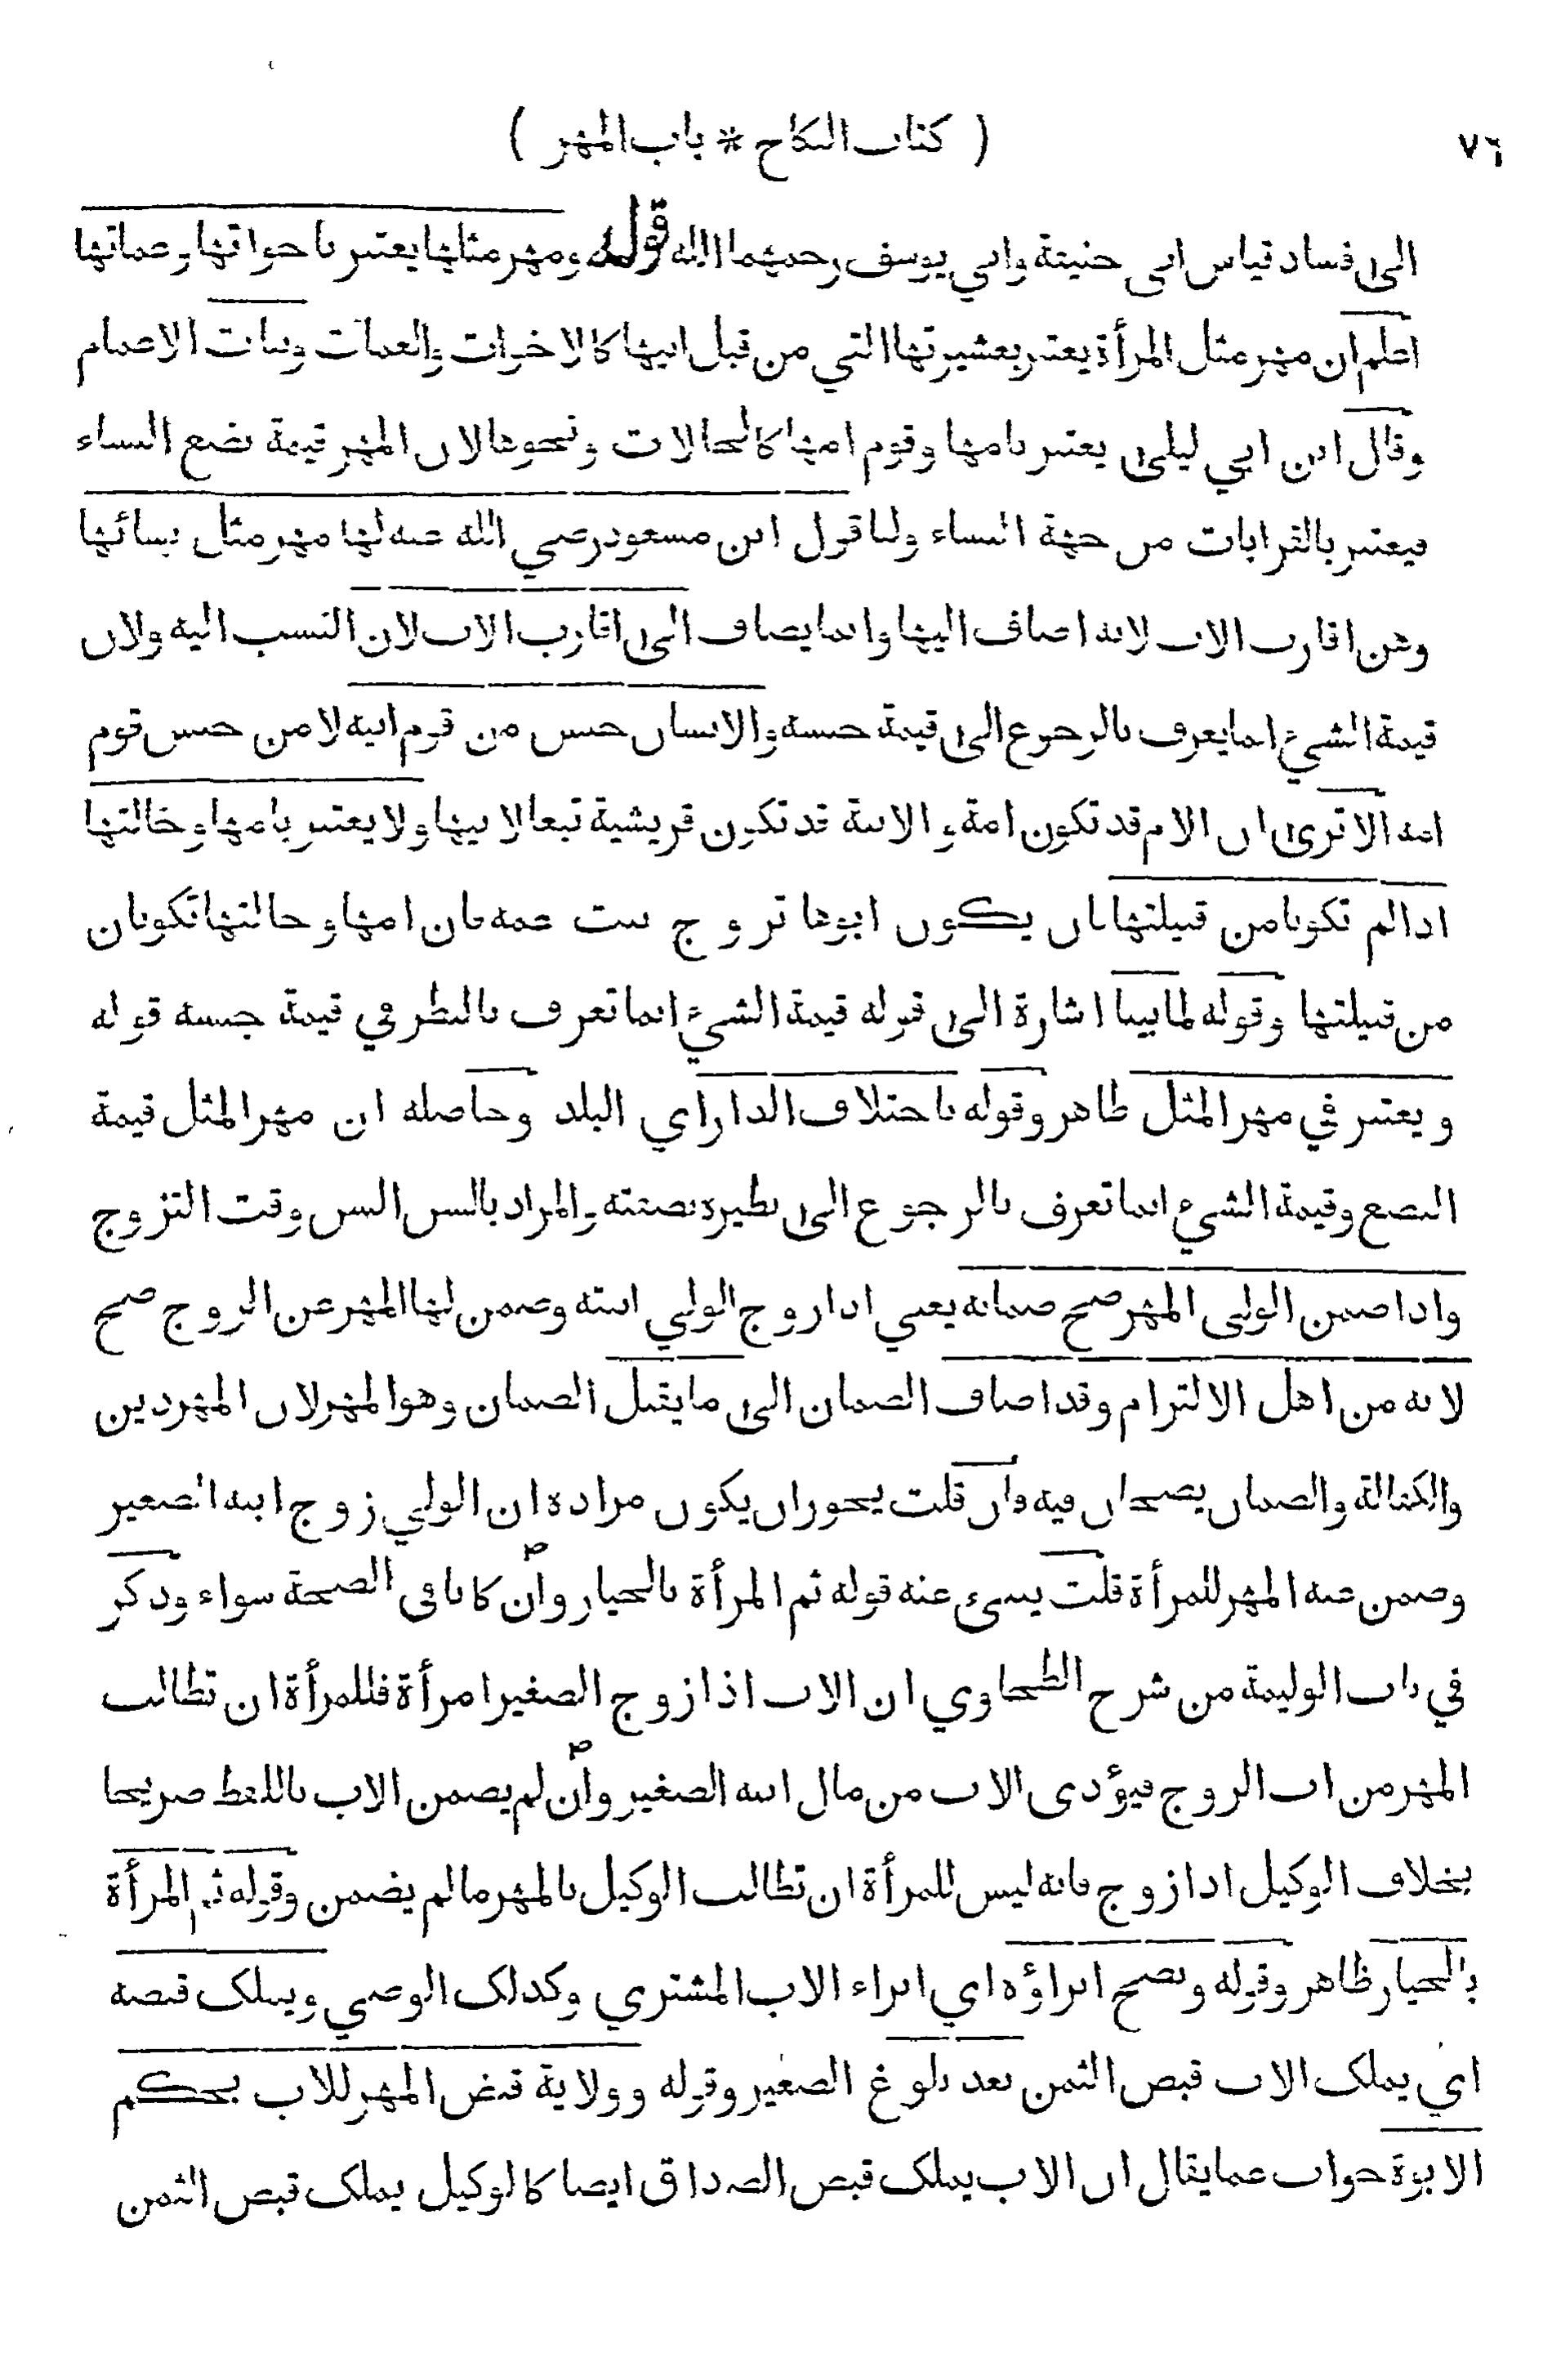 ٧٦ ( كتاب النكاح * باب المهر )
الى فساد قياس ابي حنيفة وابي يوسف رحمهما الله قوله ومهر مثلها يعتبر باخواتها وعماتها
اعلم ان مهر مثل المرأة يعتبر بعشيرتها التي من قبل ابيها كالاخوات والعمات وبنات الاعمام
وقال ابن ابي ليلى يعتبر بامها وقوم امها كالخالات ونحوها لان المهر قيمة بضع النساء
فيعتبر بالقرابات من جهة النساء ولنا قول ابن مسعود رضي الله عنه لها مهر مثل نسائها
وهن اقارب الاب لانه اضاف اليها وانما يضاف الى اقارب الاب لان النسب اليه ولان
قيمة الشيء انما يعرف بالرجوع الى قيمة جنسه والانسان جنس من قوم ابيه لا من جنس قوم
امه الا ترى ان الام قد تكون امة والابنة قد تكون قريشية تبعا لابيها ولا يعتبر بامها وخالتها
اذا لم تكونا من قبيلتها بان يكون ابوها تزوج بنت عمه فان امها وخالتها تكونان
من قبيلتها وقوله لما بينا اشارة الى قوله قيمة الشيء انما تعرف بالنظر في قيمة جنسه قوله
ويعتبر في مهر المثل ظاهر وقوله باختلاف الدار اي البلد وحاصله ان مهر المثل قيمة
البضع وقيمة الشيء انما تعرف بالرجوع الى نظيره بصفته والمراد بالسن السن وقت التزوج
واذا ضمن الولى المهر صح ضمانه يعني اذا زوج الولي ابنته وضمن لها المهر عن الزوج صح
لانه من اهل الالتزام وقد اضاف الضمان الى ما يقبل الضمان وهو المهر لان المهر دين
والكفالة والضمان يصحان فيه فان قلت يجوز ان يكون مراده ان الولي زوج ابنه الصغير
وضمن عنه المهر للمرأة قلت ينبىء عنه قوله ثم المرأة بالخيار وان كانا في الصحة سواء وذكر
في باب الوليمة من شرح الطحاوي ان الاب اذا زوج الصغير امرأة فللمرأة ان تطالب
المهر من اب الزوج فيؤدى الاب من مال ابنه الصغير وان لم يضمن الاب باللفظ صريحا
بخلاف الوكيل اذا زوج فانه ليس للمرأة ان تطالب الوكيل بالمهر ما لم يضمن وقوله ثم المرأة
بالخيار ظاهر وقوله ويصح ابراؤه اي ابراء الاب المشتري وكذلك الوصي ويملك قبضه
اي يملك الاب قبض الثمن بعد بلوغ الصغير وقوله وولاية قبض المهر للاب بحكم
الابوة جواب عما يقال ان الاب يملك قبض الصداق ايضا كالوكيل يملك قبض الثمن